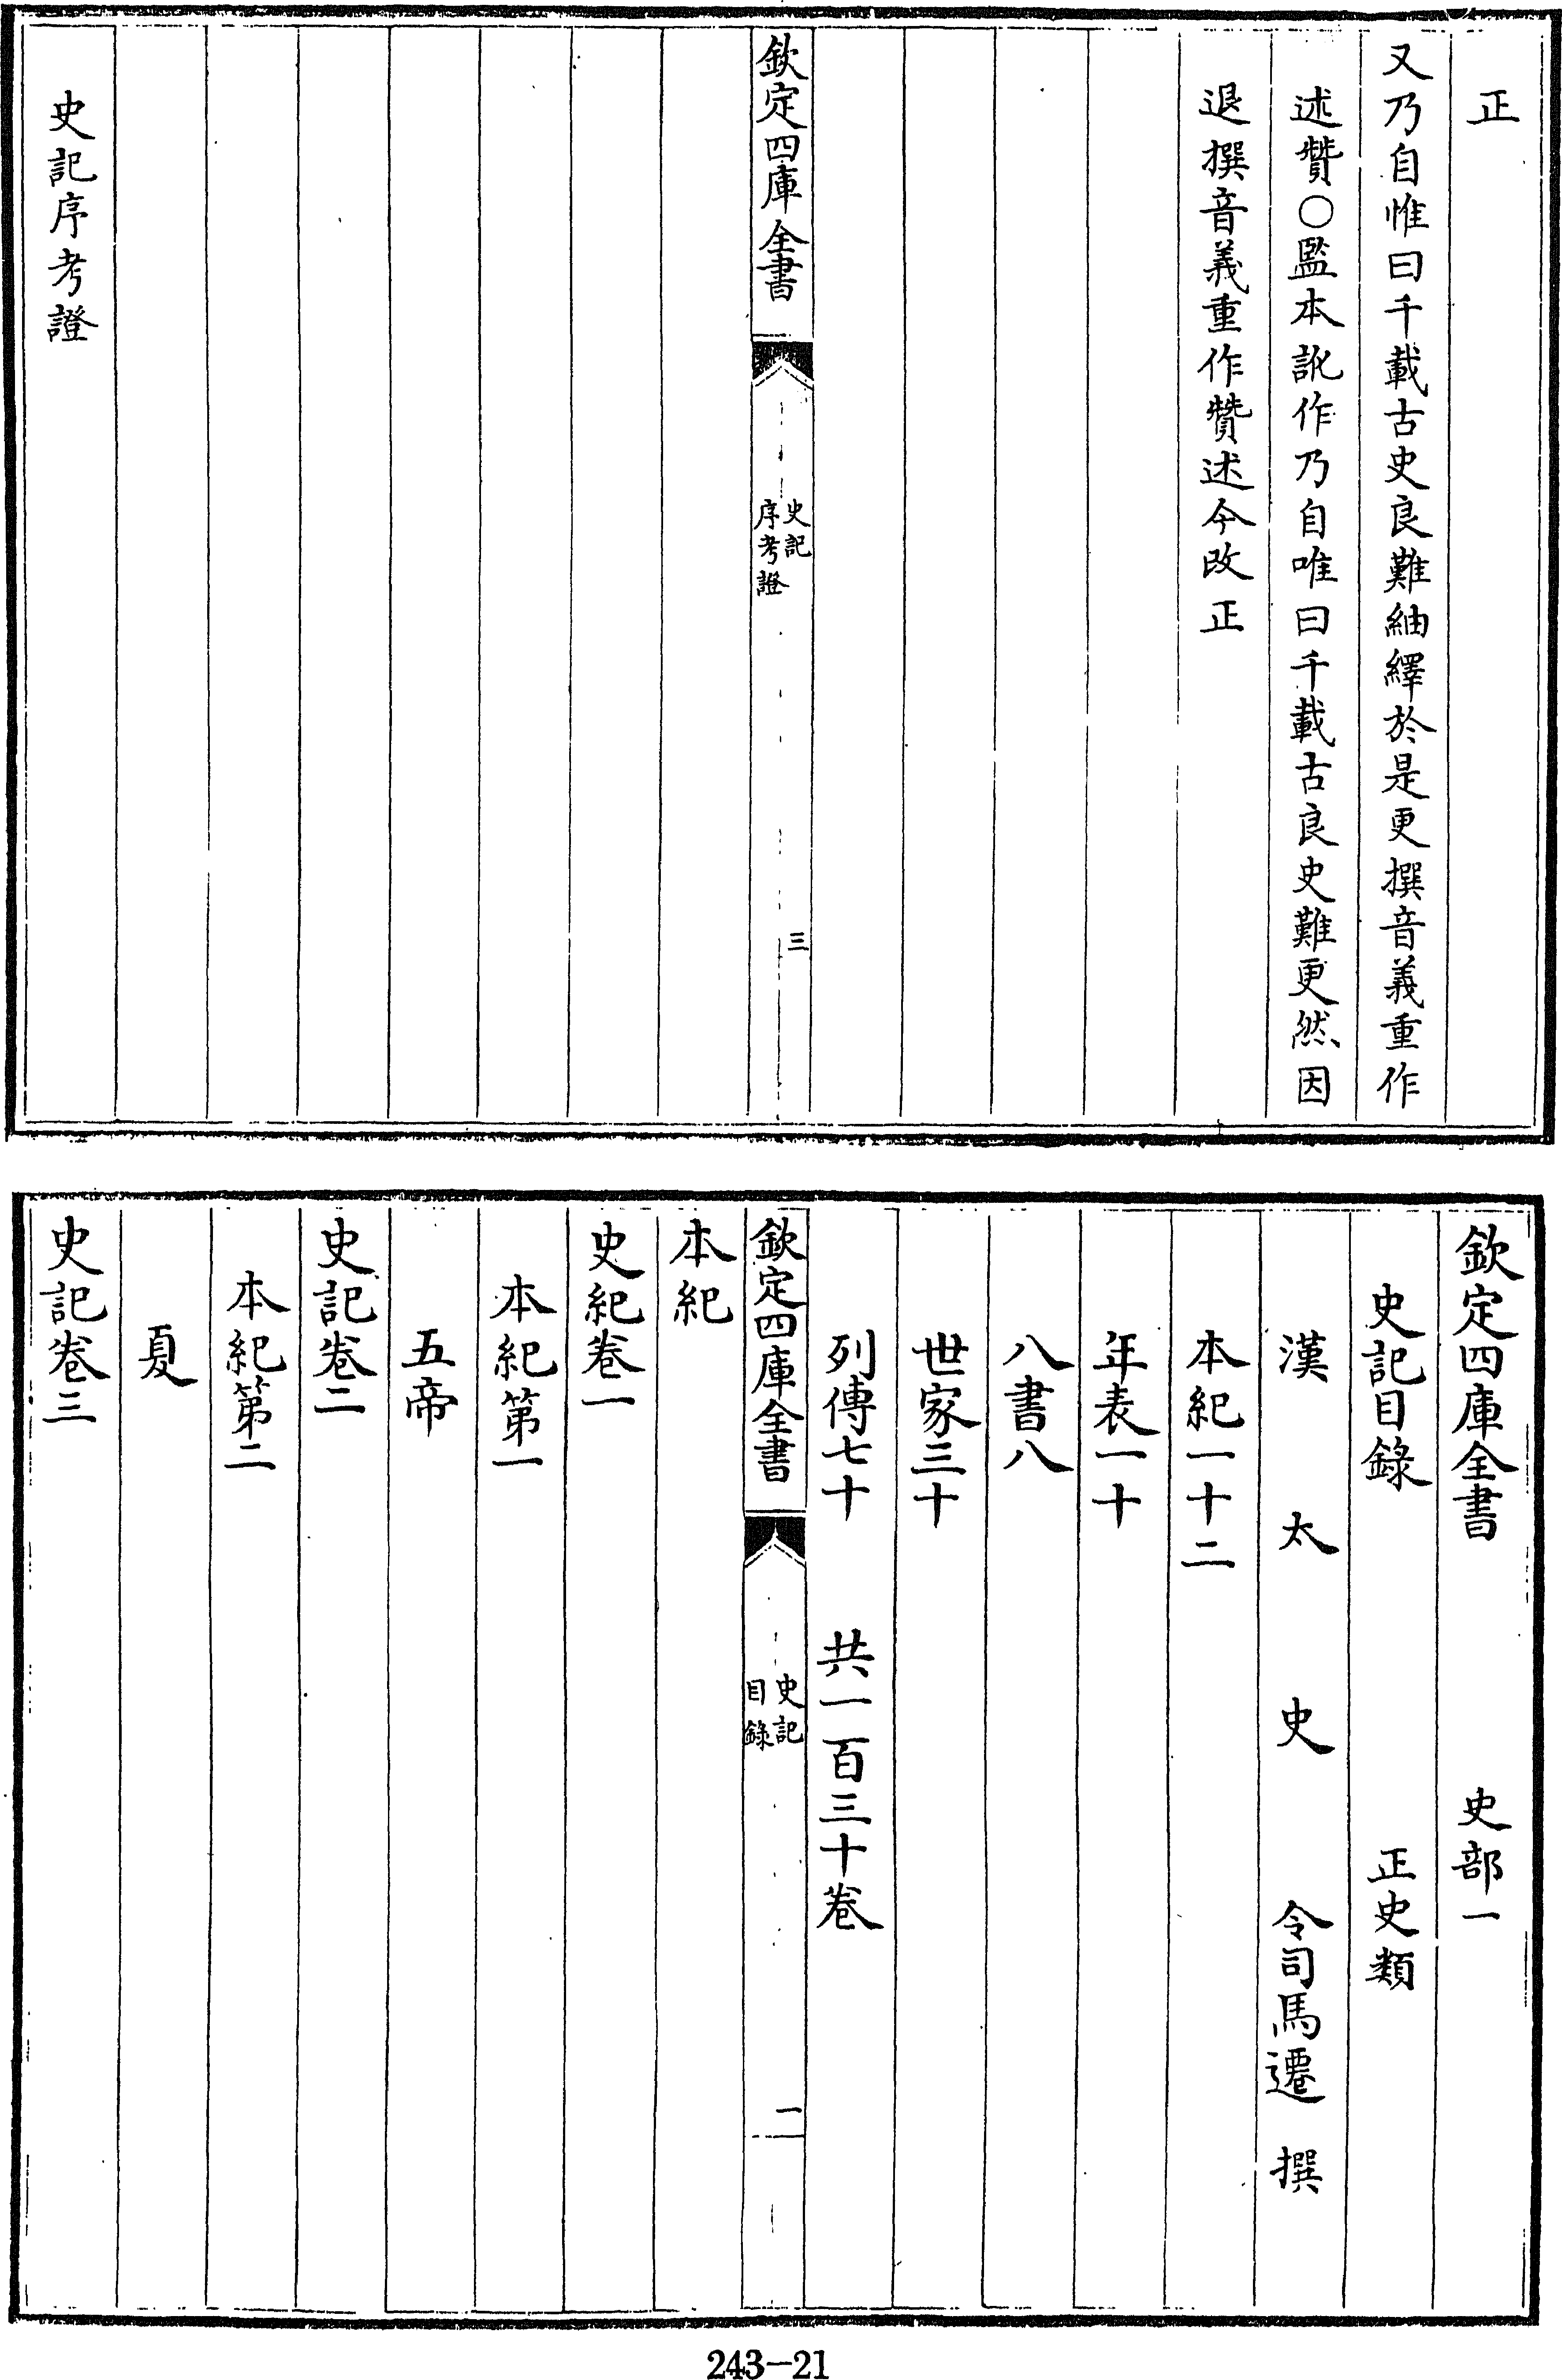 正
又乃自惟曰千載古史良難紬繹於是更撰音義重作
述贊○監本訛作乃自唯曰千載古良史難更然因
退撰音義重作贊述今改正
欽定四庫全書
史記
序考證
三
史記序考證
欽定四庫全書 史部一
史記目錄 正史類
漢太史令司馬遷撰
本紀一十二
年表一十
八書八
世家三十
列傳七十 共一百三十卷
欽定四庫全書
史記
目錄
一
本紀
史紀卷一
本紀第一
五帝
史記卷二
本紀第二
夏
史記卷三
243-21